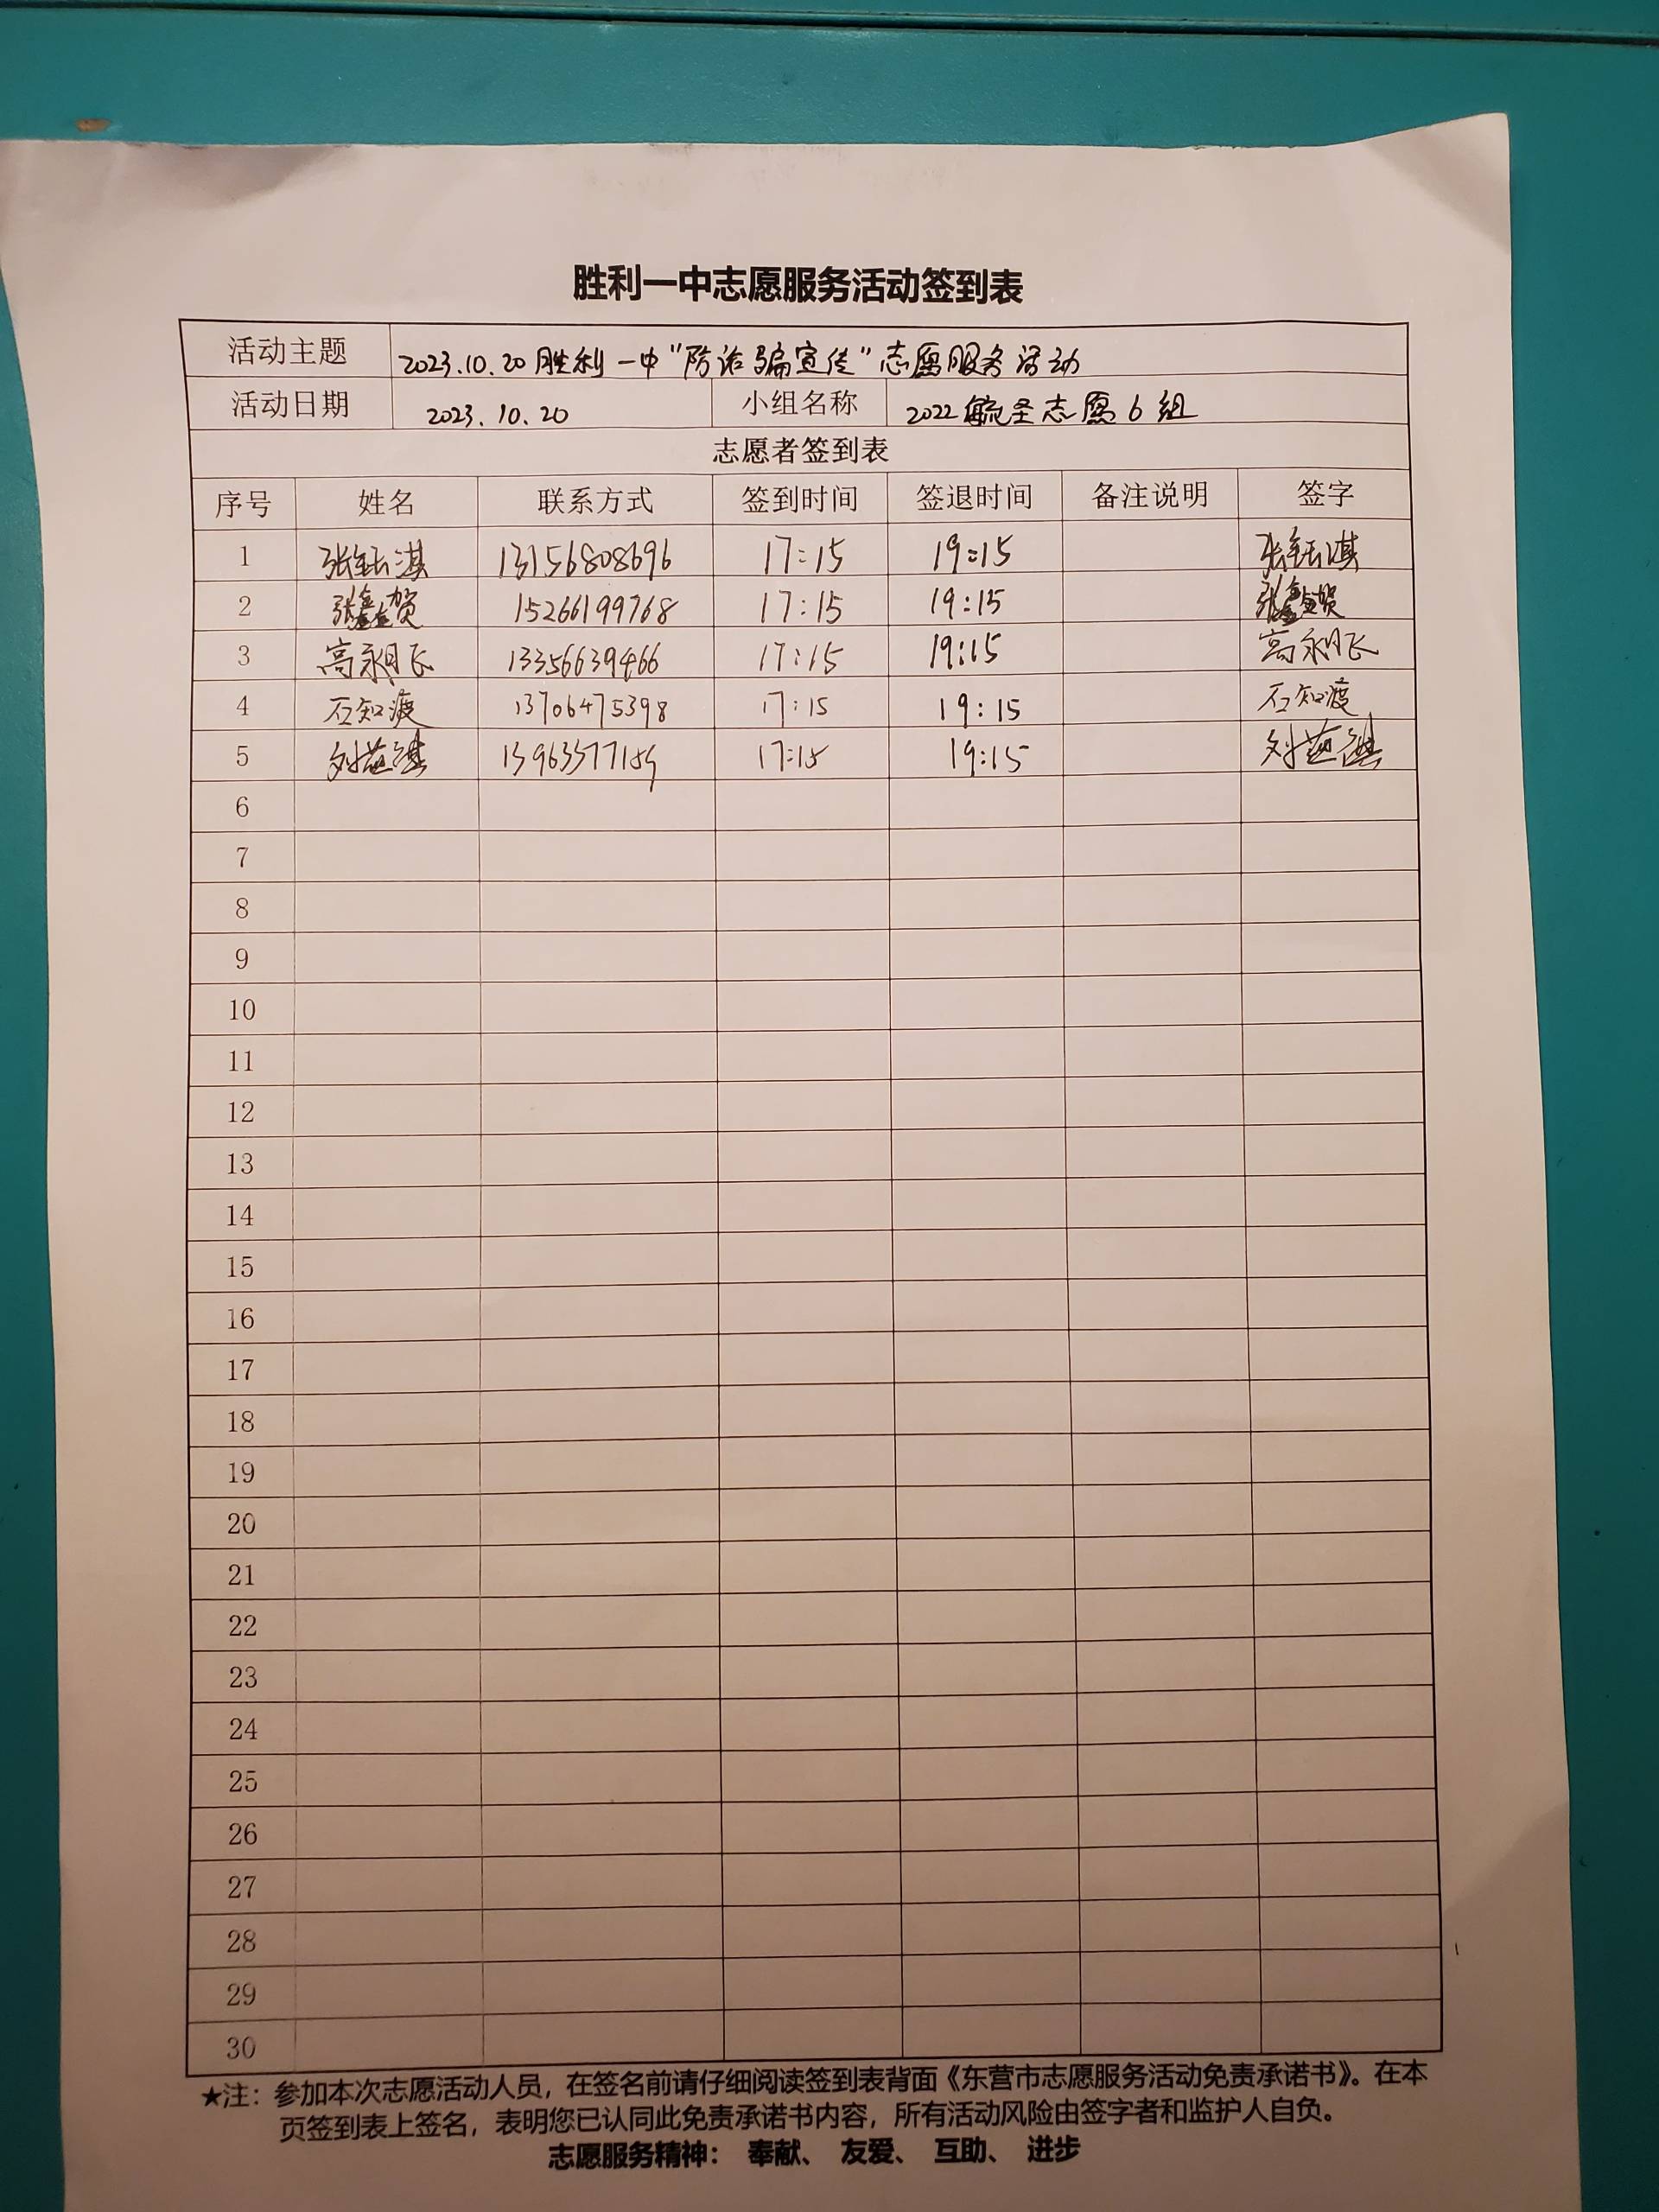 胜利一中志愿服务活动签到表
活动主题 2023.10.20胜利一中"防诈骗宣传"志愿服务活动
活动日期 2023.10.20 小组名称 2022毓圣志愿6组
志愿者签到表
序号 姓名 联系方式 签到时间 签退时间 备注说明 签字
1 张钰淇 13156808696 17:15 19:15 张钰淇
2 张鑫贺 15266199768 17:15 19:15 张鑫贺
3 高永 13356639466 17:15 19:15 高永
4 石知渡 13706475398 17:15 19:15 石知渡
5 刘 13963577159 17:15 19:15 刘
6
7
8
9
10
11
12
13
14
15
16
17
18
19
20
21
22
23
24
25
26
27
28
29
30
★注：参加本次志愿活动人员，在签名前请仔细阅读签到表背面《东营市志愿服务活动免责承诺书》。在本
页签到表上签名，表明您已认同此免责承诺书内容，所有活动风险由签字者和监护人自负。
志愿服务精神： 奉献、 友爱、 互助、 进步